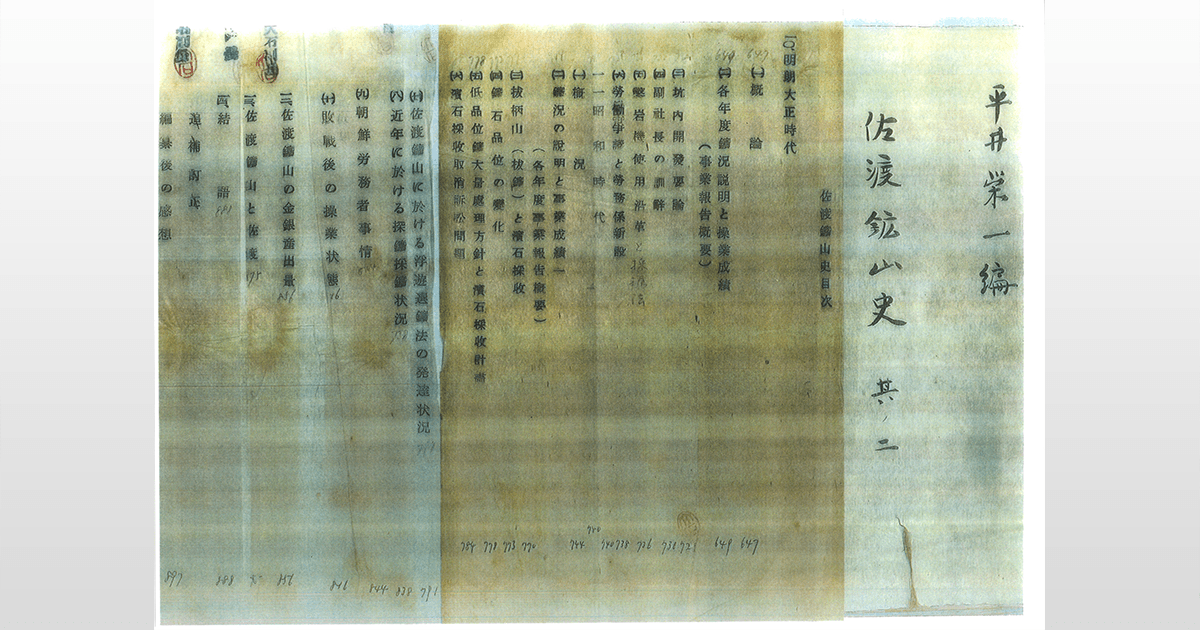 平井栄一編
佐渡鉱山史 其ノ二
佐渡鑛山史目次
一〇、明朝大正時代
(一)概論
647
(二)各年度鑛況説明と操業成績
(事業報告概要)
649
(三)坑内開發要論
(四)副社長の訓辭
(五)鑿岩機使用沿革と
(六)労働争議と労務係新設
一一昭和時代
(一)概況
(二)鑛況の説明と事業成績
(各年度事業報告概要)
(三)拔柄山(拔鑛)と濱石採收
(四)鑛石品位の變化
(五)低品位鑛大量處理方針と濱石採收計画
(六)濱石採收取消訴訟問題
647
649
736
738
740
744
770
773
778
784
(七)佐渡鑛山に於ける浮遊選鑛法の発達状況
791
(八)近年に於ける探鑛採鑛状況
838
(九)朝鮮労務者事情
844
(十)敗戦後の操業状態
846
一二、佐渡鑛山の金銀産出量
856
一三、佐渡鑛山と佐渡
一四、結語
888
追補訂正
編集後の感想
897